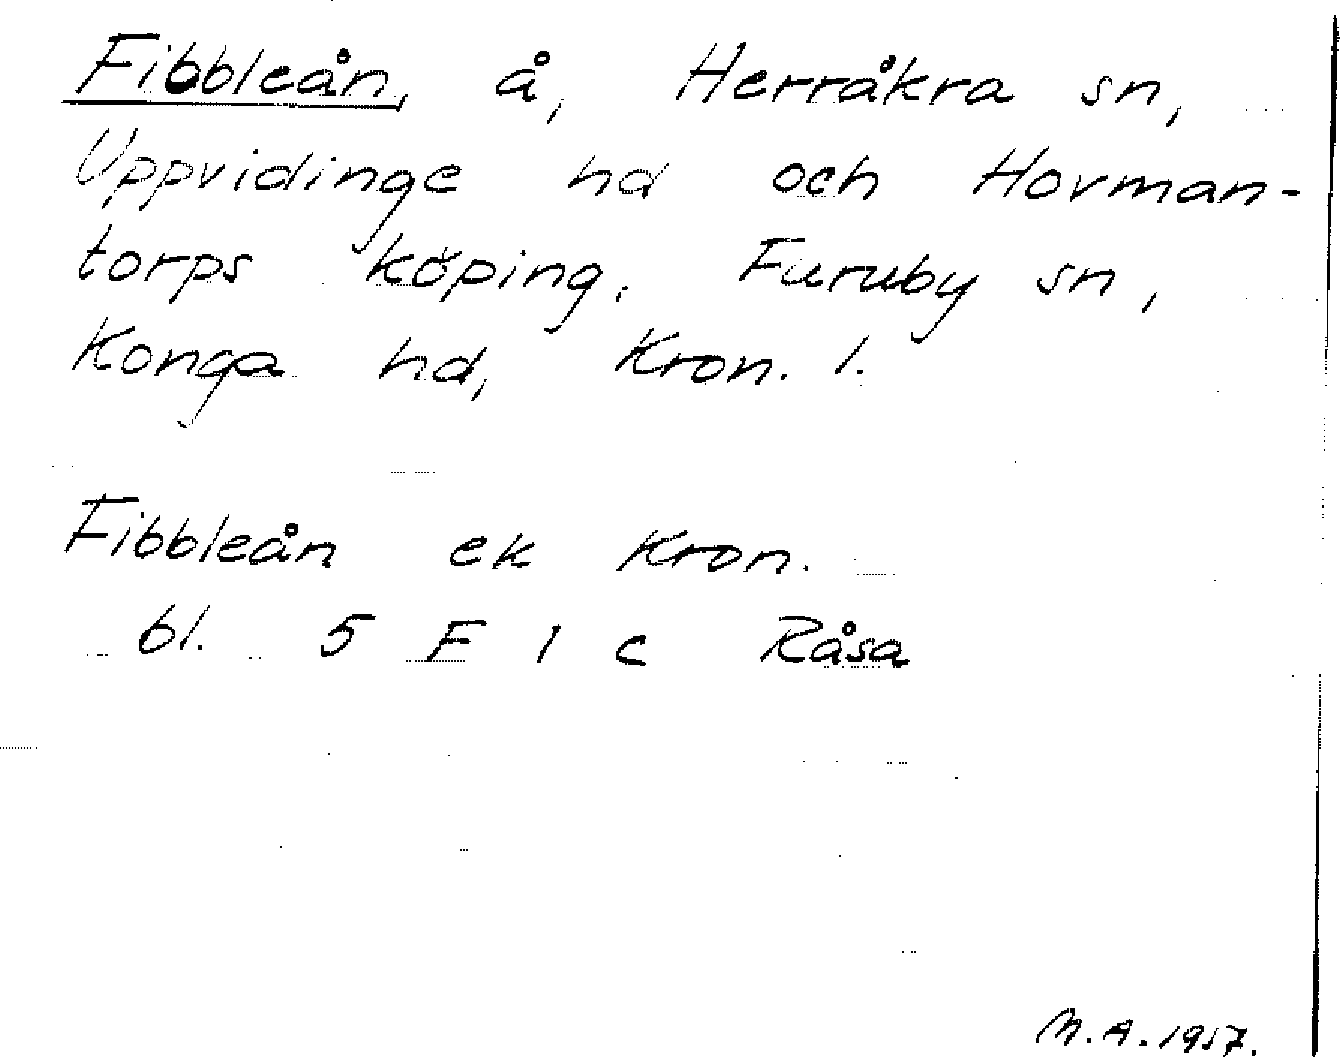 Fibbleån, å, Herråkra sn,
Uppvidinge hd och Hovman-
torps köping, Furuby sn,
Konga hd, Kron. l.
Fibbleån ek Kron.
bl. 5 F 1 c Råsa
M.A. 1957.